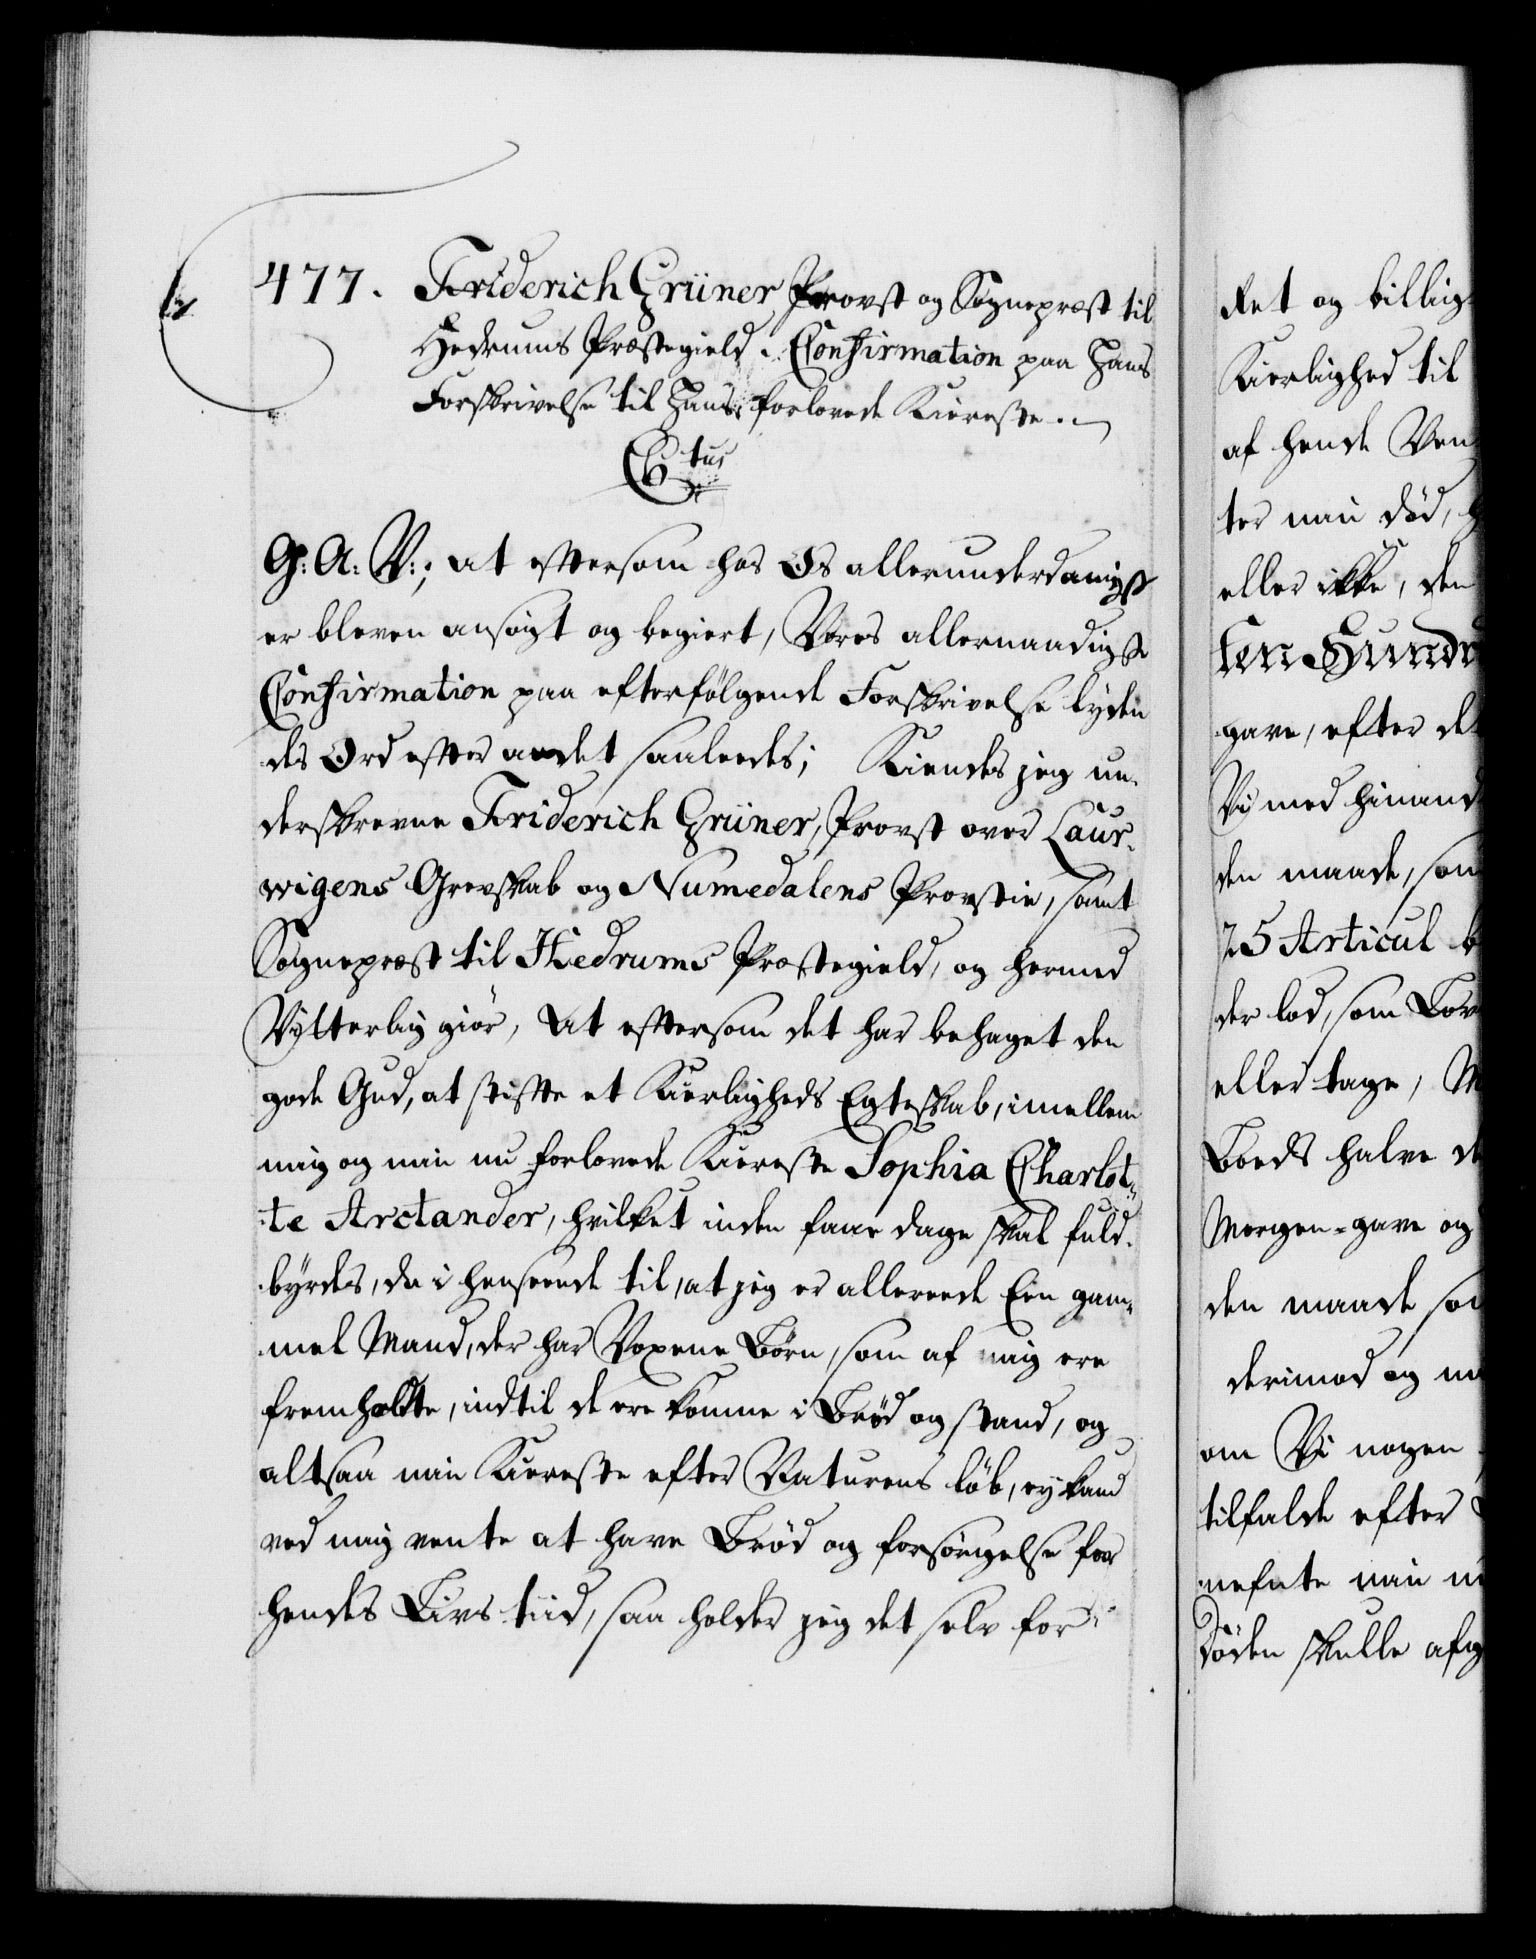 477. Friderich Grüner Provst og Sognepræst til
Hedrums Præstegield. Confirmation paa Hans
Forskrivelse til Hans forlovede Kiereste.
C6tus
G: A: V:; at eftersom hos Os allerunderdanigst
er bleven ansøgt og begiert, Vores allernaadigste
Confirmation paa efterfølgende Forskrivelse lyden
des Ord efter andet saaleedes; Kiendes jeg un-
derskrevne Friderich Grüner, Provst over Laur-
wigens Grevskab og Numedalens Provstie, samt
Sognepræst til Hedrums Præstegield, og hermed
Vitterlig giør, At eftersom det har behaget den
gode Gud, at stifte et Kierligheds Egteskab, imellem
mig og min nu forlovede Kiereste Sophia Charlot-
te Arctander, hvilket inden faae dage skal fuld-
byrdes, da i henseende til, at jeg er allereede Een gam-
mel Mand, der har Voxene Børn, som af mig ere
fremholdte, indtil de ere komne i Brød og stand, og
altsaa min Kiereste efter Naturens løb, ey kand
ved mig vente at have Brød og forsørgelse for
hendes Livs tiid, saa holder jeg det selv for
Ret og billig
Kierlighed til
af hende Ven
ter min død,
eller ikke, den
Een Hundr
gave, efter de
Vi med hinand
den maade, som
25 Articul b
der lod, som Lov
eller tage, M
Boeds halve de
Morgen-gave og
den maade so
derimod og m
om Vi nogen
tilfalde efter
nefnte min
Døden skulle afg